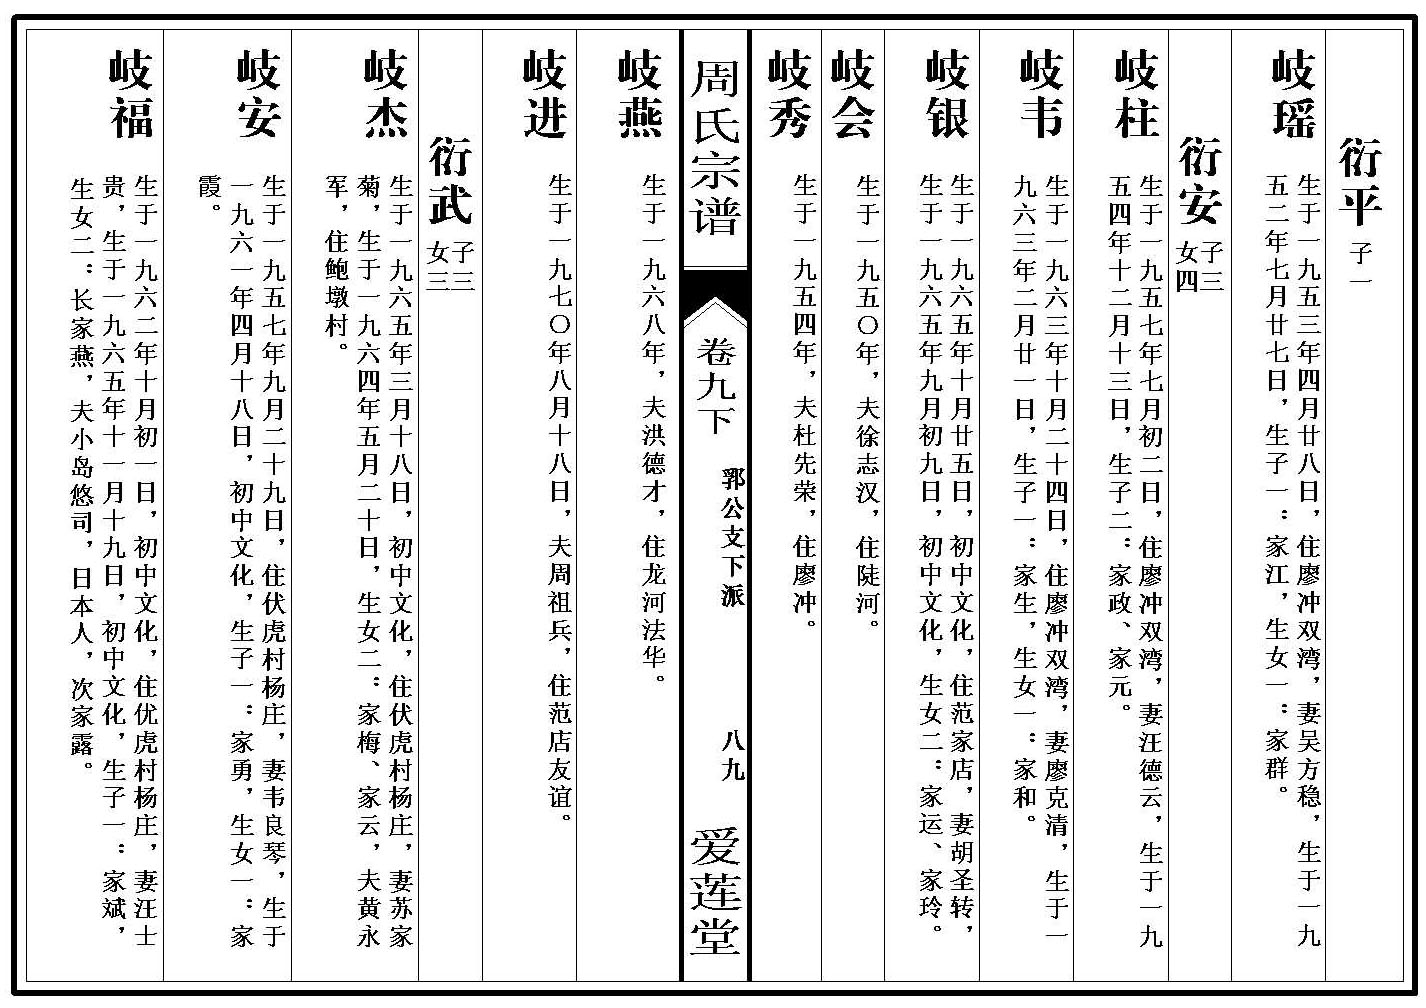 衍平
子一
岐瑶
生于一九五三年四月廿八日，住廖冲双湾，妻吴方稳，生于一九
五二年七月廿七日，生子一：家江，生女一：家群。
衍安
子三
女四
岐柱
生于一九五七年七月初二日，住廖冲双湾，妻汪德云，生于一九
五四年十二月十三日，生子二：家政、家元。
岐韦
生于一九六三年十月二十四日，住廖冲双湾，妻廖克清，生于一
九六三年二月廿一日，生子一：家生，生女一：家和。
岐银
生于一九六五年十月廿五日，初中文化，住范家店，妻胡圣转，
生于一九六五年九月初九日，初中文化，生女二：家运、家玲。
岐会
生于一九五〇年，夫徐志汉，住陡河。
岐秀
生于一九五四年，夫杜先荣，住廖冲。
周氏宗谱
卷九下
郛公支下派
八九
爱莲堂
岐燕
生于一九六八年，夫洪德才，住龙河法华。
岐进
生于一九七〇年八月十八日，夫周祖兵，住范店友谊。
衍武
子三
女三
岐杰
生于一九六五年三月十八日，初中文化，住伏虎村杨庄，妻苏家
菊，生于一九六四年五月二十日，生女二：家梅、家云，夫黄永
军，住鲍墩村。
岐安
生于一九五七年九月二十九日，住伏虎村杨庄，妻韦良琴，生于
一九六一年四月十八日，初中文化，生子一：家勇，生女一：家
霞。
岐福
生于一九六二年十月初一日，初中文化，住优虎村杨庄，妻汪士
贵，生于一九六五年十一月十九日，初中文化，生子一：家斌，
生女二：长家燕，夫小岛悠司，日本人，次家露。